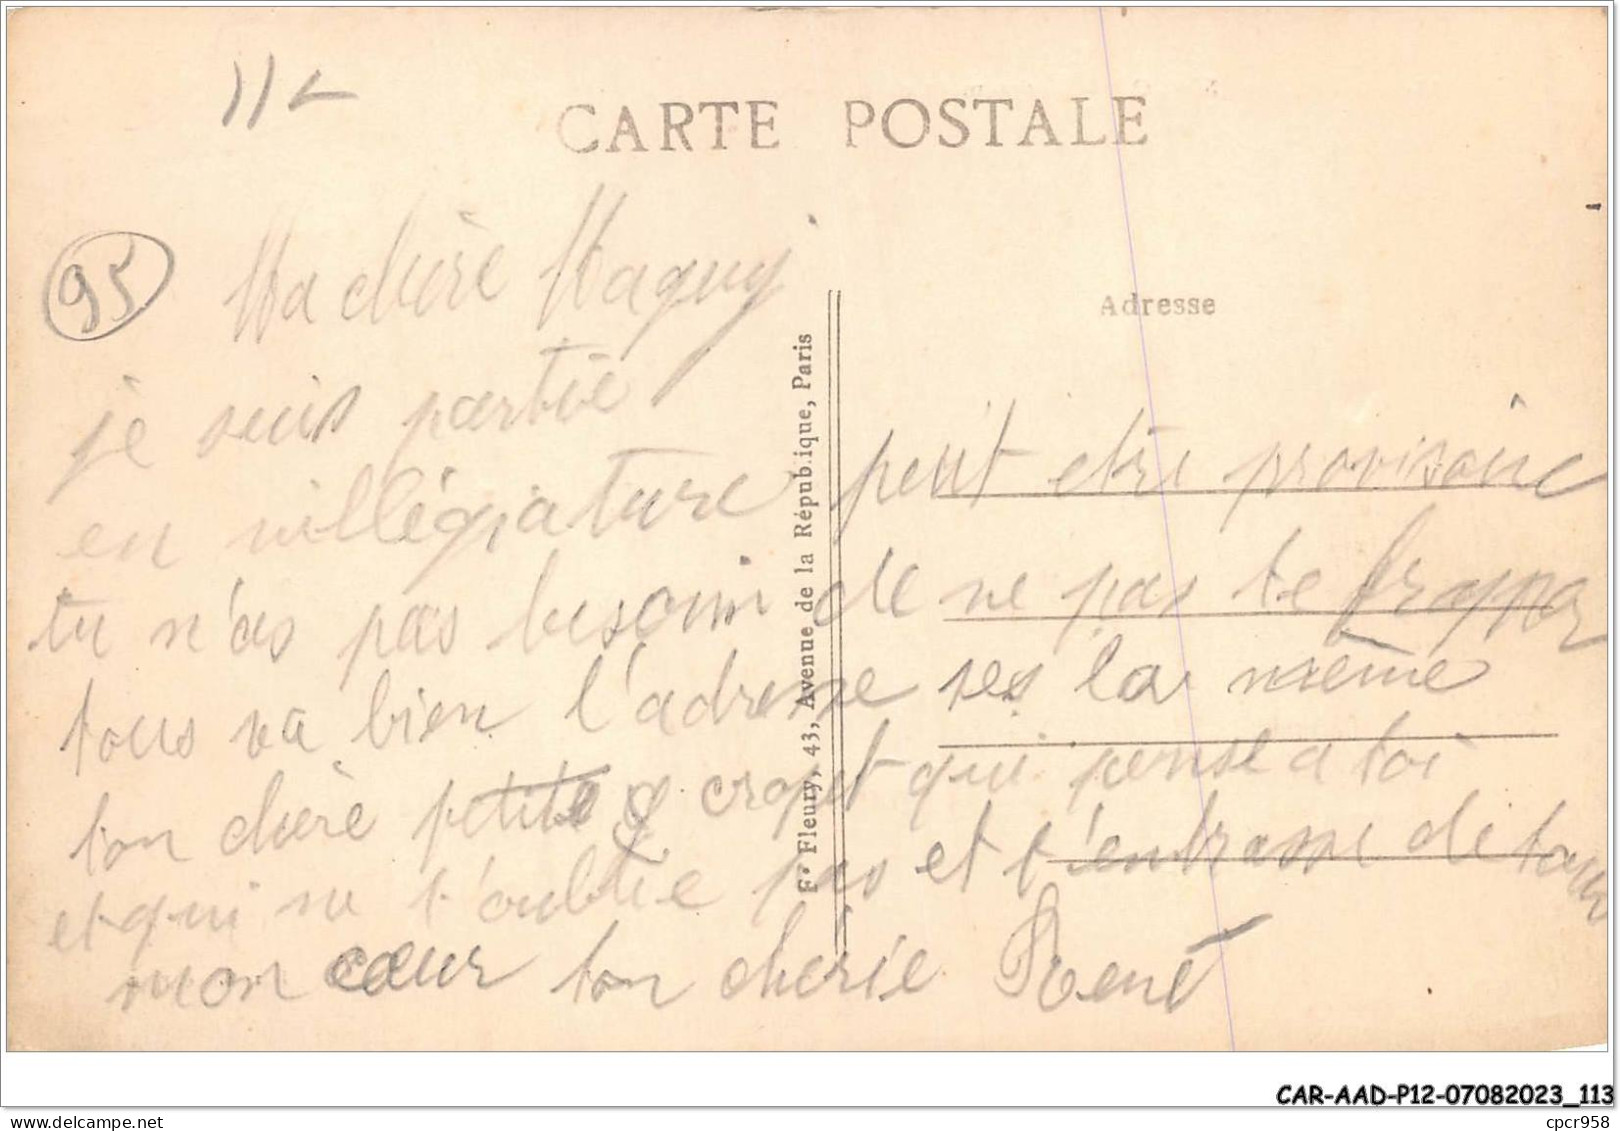 11
CARTE POSTALE
95
Ma chère Maguy
Adresse
je suis partie
en villégiature peut etre provisoire
tu n'as pas besoin de ne pas te frapper
tous va bien l'adresse ses la même
ton chère petite crapet qui pense a toi
et qui ne t'oublie pas et t'enbrasse de tous
mon cœur ton cherie René
Fs Fleury, 43, Avenue de la République, Paris
CAR-AAD-P12-07082023_113
delcampe.net
cpcr958